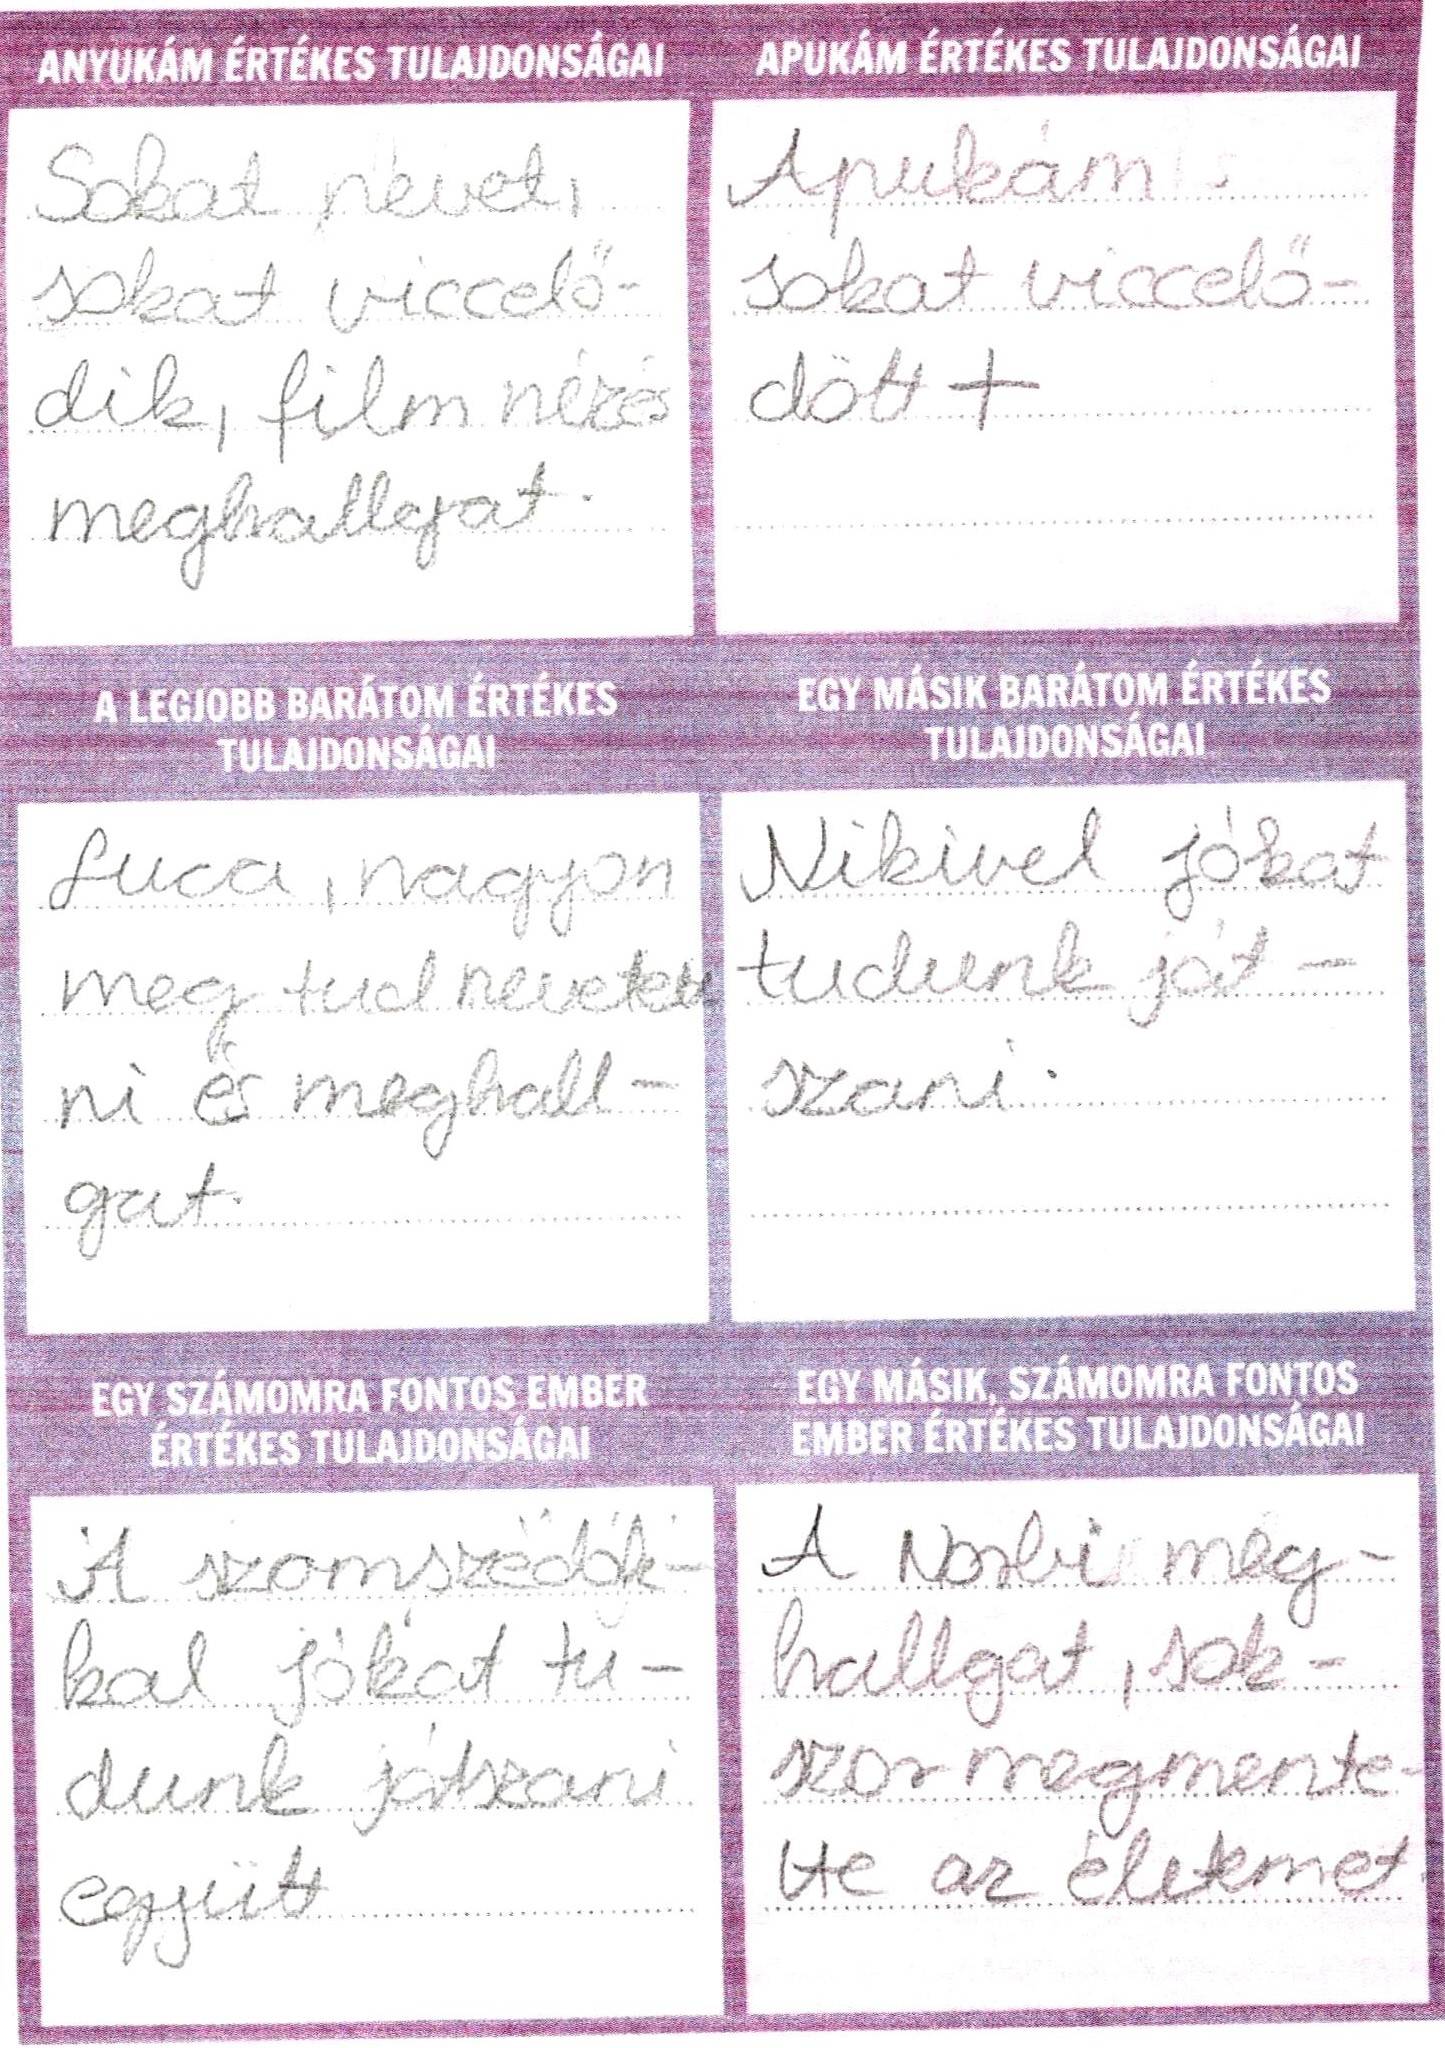 ANYUKÁM ÉRTÉKES TULAJDONSÁGAI
Sokat nevet,
sokat viccelő-
dik, film nézés
meghallgat.
APUKÁM ÉRTÉKES TULAJDONSÁGAI
Apukám
sokat viccelő-
dött +
A LEGJOBB BARÁTOM ÉRTÉKES
TULAJDONSÁGAI
Luca, nagyon
meg tud nevetett
ni és meghall-
gat.
EGY MÁSIK BARÁTOM ÉRTÉKES
TULAJDONSÁGAI
Nikivel jókat
tudunk ját-
szani.
EGY SZÁMOMRA FONTOS EMBER
ÉRTÉKES TULAJDONSÁGAI
A szomszédók-
kal jókat tu-
dunk játszani
együtt
EGY MÁSIK, SZÁMOMRA FONTOS
EMBER ÉRTÉKES TULAJDONSÁGAI
A Norbi meg-
hallgat, sok-
szor megmente-
tte az életemet